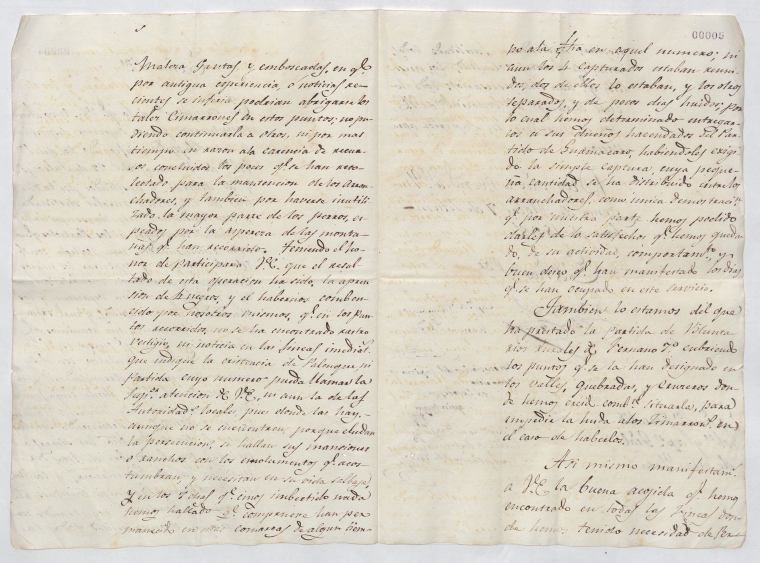 Maleza, Grutas y emboscadas, en qe.
por antigua esperiencia, ó noticias re-
cientes se inferia podrian abrigarse los
tales Cimarrones en estos puntos; no pu-
diendo continuarla a otros, ni por mas
tiempo en razon ála carencia de recur-
sos, concluidos los pocos qe. se han reco-
lectado para la mantencion de los Arran-
chadores, y tambien por haverse inutili-
zado la mayor parte de los perros, es-
peados por la aspereza de las monta-
ñas qe. han recorrido. Teniendo el ho-
nor de participar a V.E. que el resul-
tado de esta operacion ha sido, la apren-
sion de 4 negros, y el habernos conben-
cido por nosotros mismos, qe. en los pun-
tos recorridos, no se ha encontrado rastro
vestigio, ni noticia en las fincas inmediats.
que indique la existencia de Palenque ni
Partida cuyo numero pueda llamar la
Supr. atencion de V.E., ni aun la de las
Autoridads. locales, pues donde las hay,
aunque no se encuentren, porque eludan
la persecucion, se hallan sus mansiones
ó ranchos con los
tumbran y necesitan en su vida salbaje,
y en los 7 dias qe. emos imbertido nada
hemos hallado qe. compruebe han per-
manecido en esas comarcas de algun tiem-
00005
po ala fha en aquel numero; ni
aun los 4 capturados estaban reuni-
dos; dos de ellos lo estaban, y los otros
separados, y de pocos dias huidos; por
lo cual hemos determinado entregar-
los a sus dueños hacendados del Par-
tido de Guamacaro, habiendoles exigi-
do la simple captura, cuya peque-
ña cantidad se ha distribuido entre los
arranchadores, como unica demostracin.
qe. por nuestra parte hemos podido
darles de lo satisfechos qe. hemos queda-
do, de su actividad, comportamto. y
buen deseo qe. han manifestado los dias
qe. se han ocupado en este servicio.
Tambien lo estamos del que
ha prestado la partida de Volunta-
rios Rurales de Fernando 7o. cubriendo
los puntos qe. se la han designado en
los Valles, Quebradas, y Cruceros don-
de hemos creido combte. situarla, para
impedir la huida alos Cimarrons. en
el caso de haberlos.
Asi mismo manifestams.
a V.E. la buena acojida qe. hemos
encontrado en todas las fincas don-
de hemos tenido necesidad de Per-